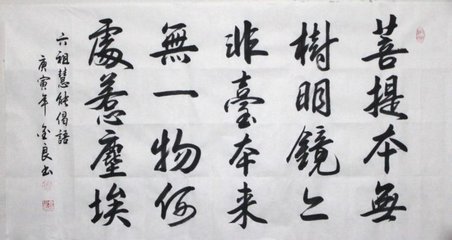 菩提本無
樹明鏡亦
非臺本来
無一物何
處惹塵埃
六祖慧能偈語
庚寅年金良书